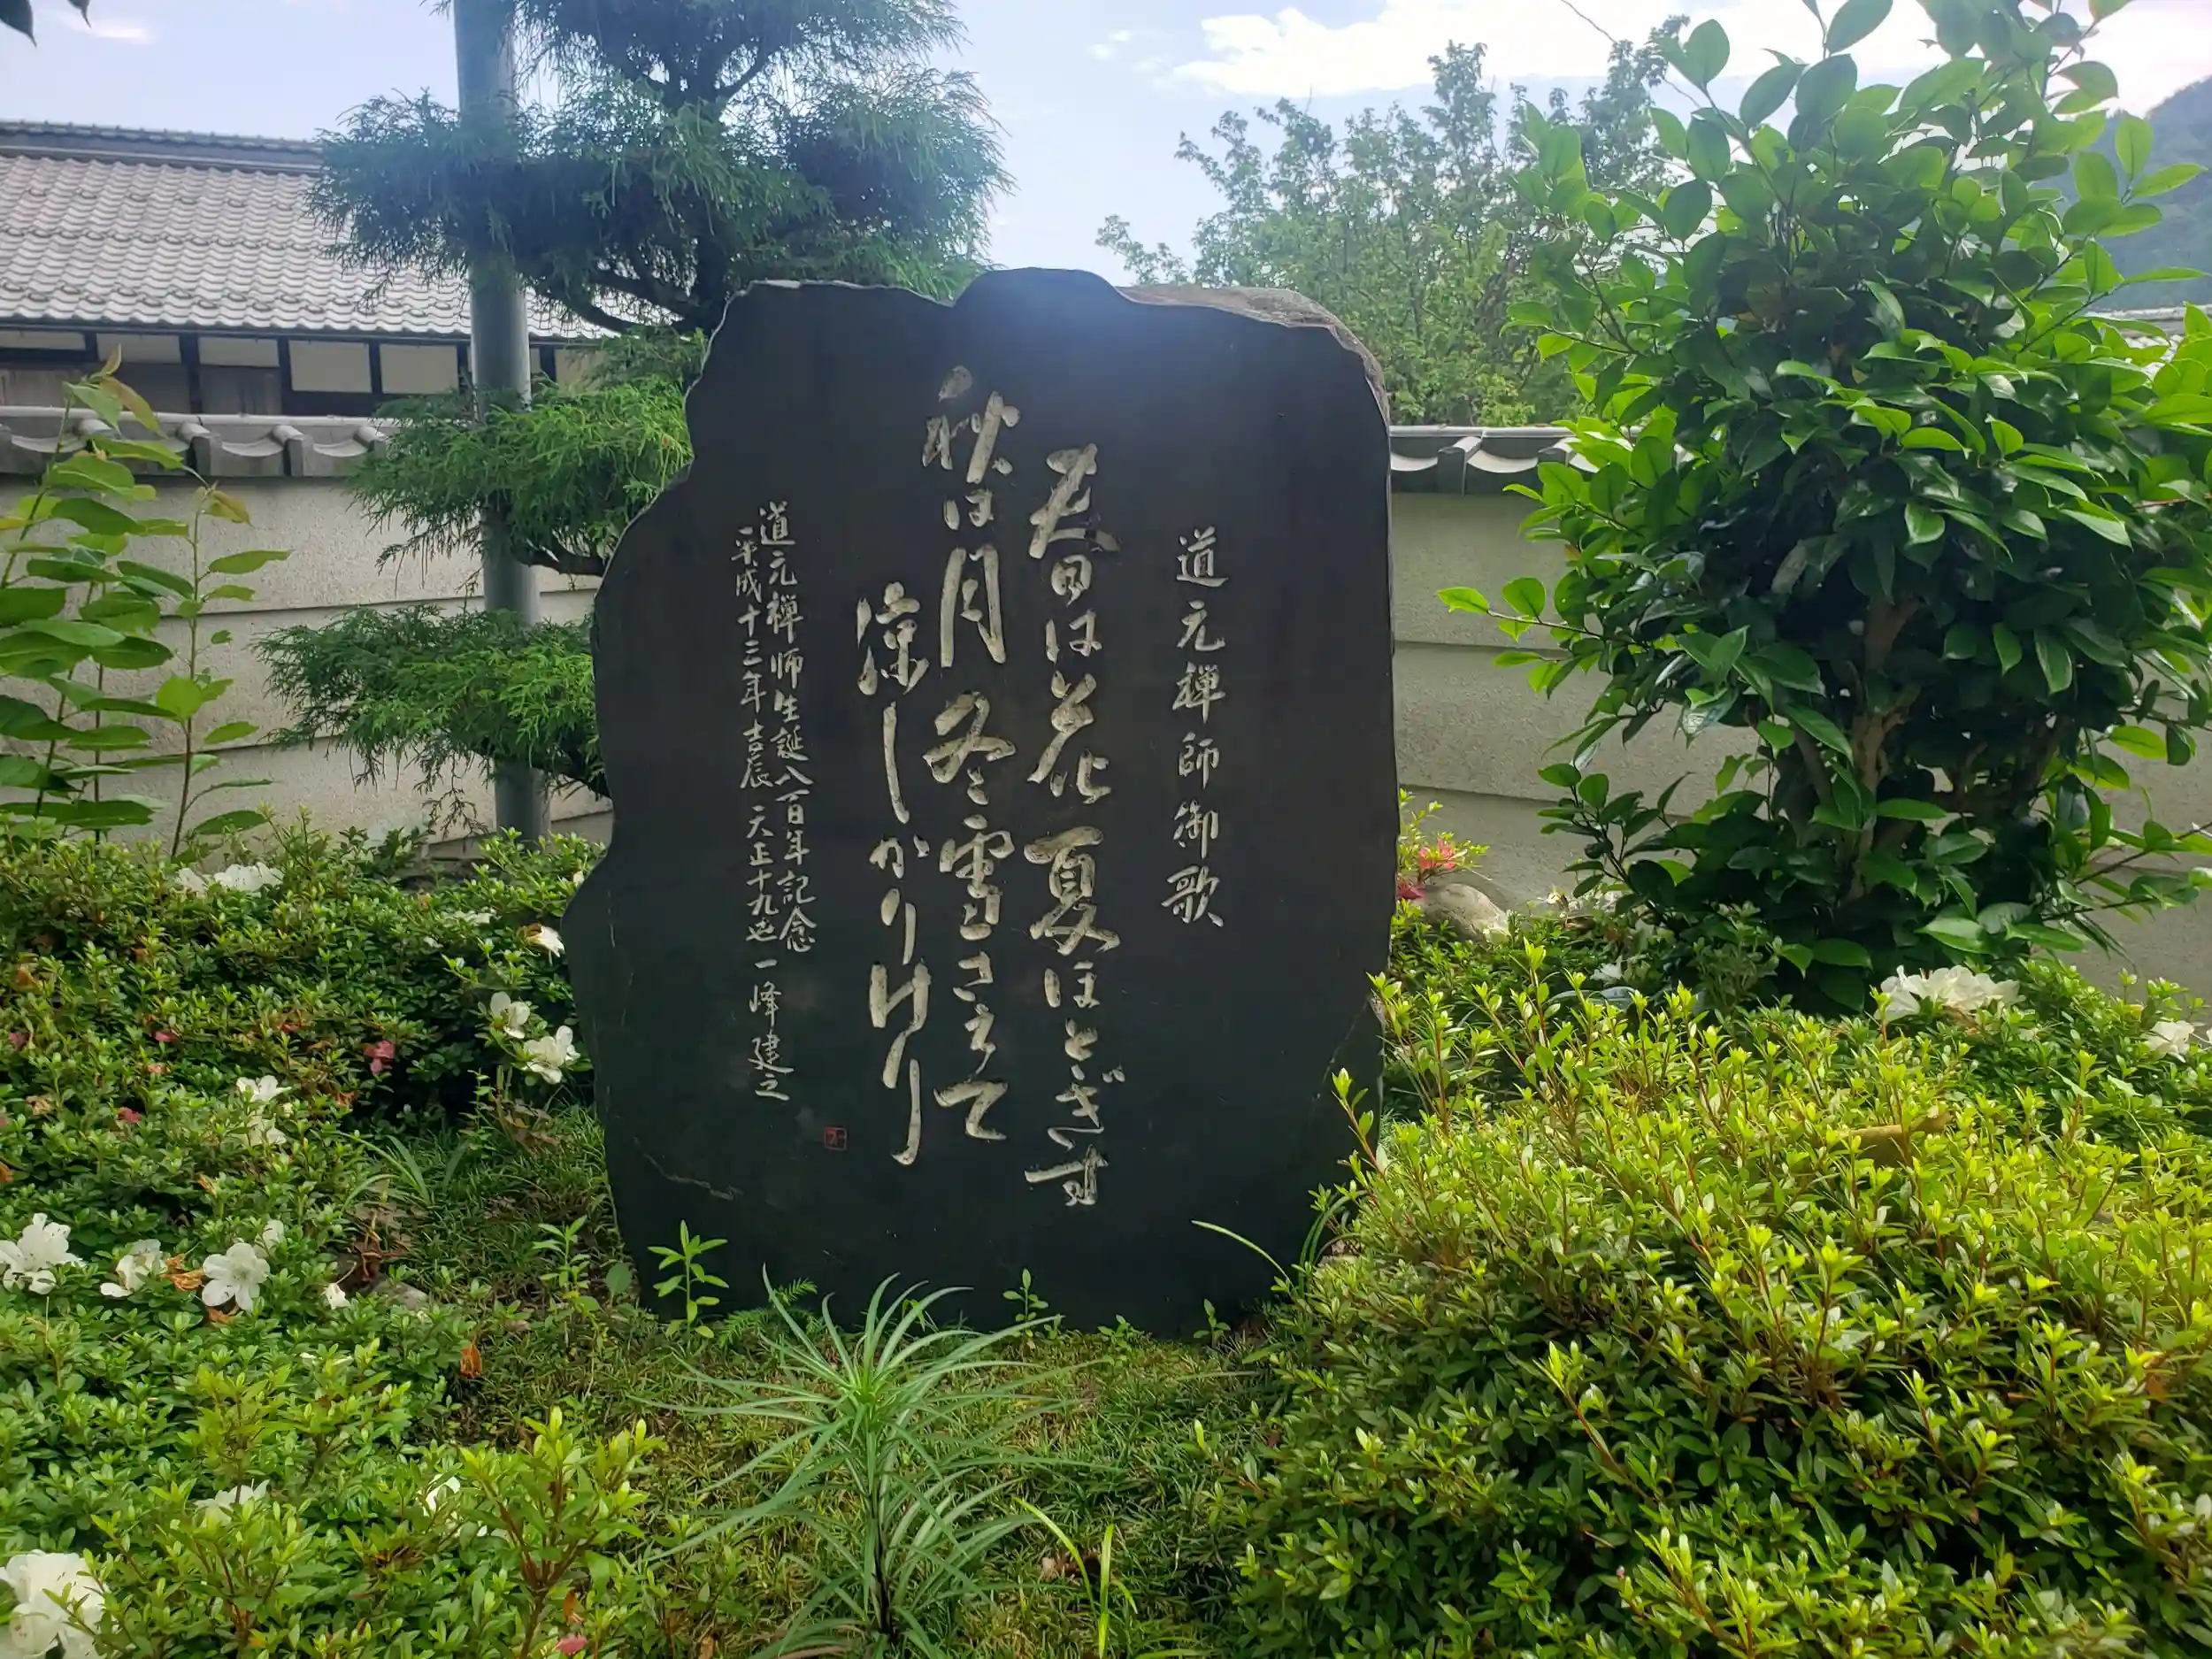 道元禅師御歌
春は花夏ほとぎす
秋は月冬雪さえて
涼しかりけり
道元禅師生誕八百年記念
平成十三年吉辰 天正十九世 一峰建之